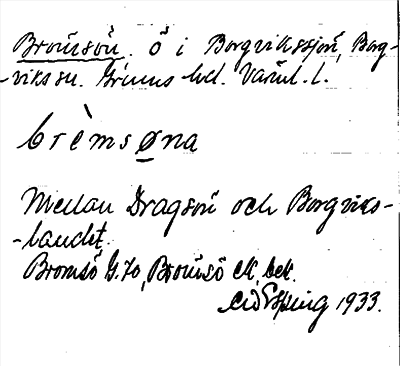 Bromsön. Ö i Borgvikssjön, Borg-
-viks sn. Grums hd. Värml. l.
brèmsøna
Mellan Dragsön och Borgviks-
-landet.
Bromsö G.K., Bromsö ek. bek.
Espling 1933.